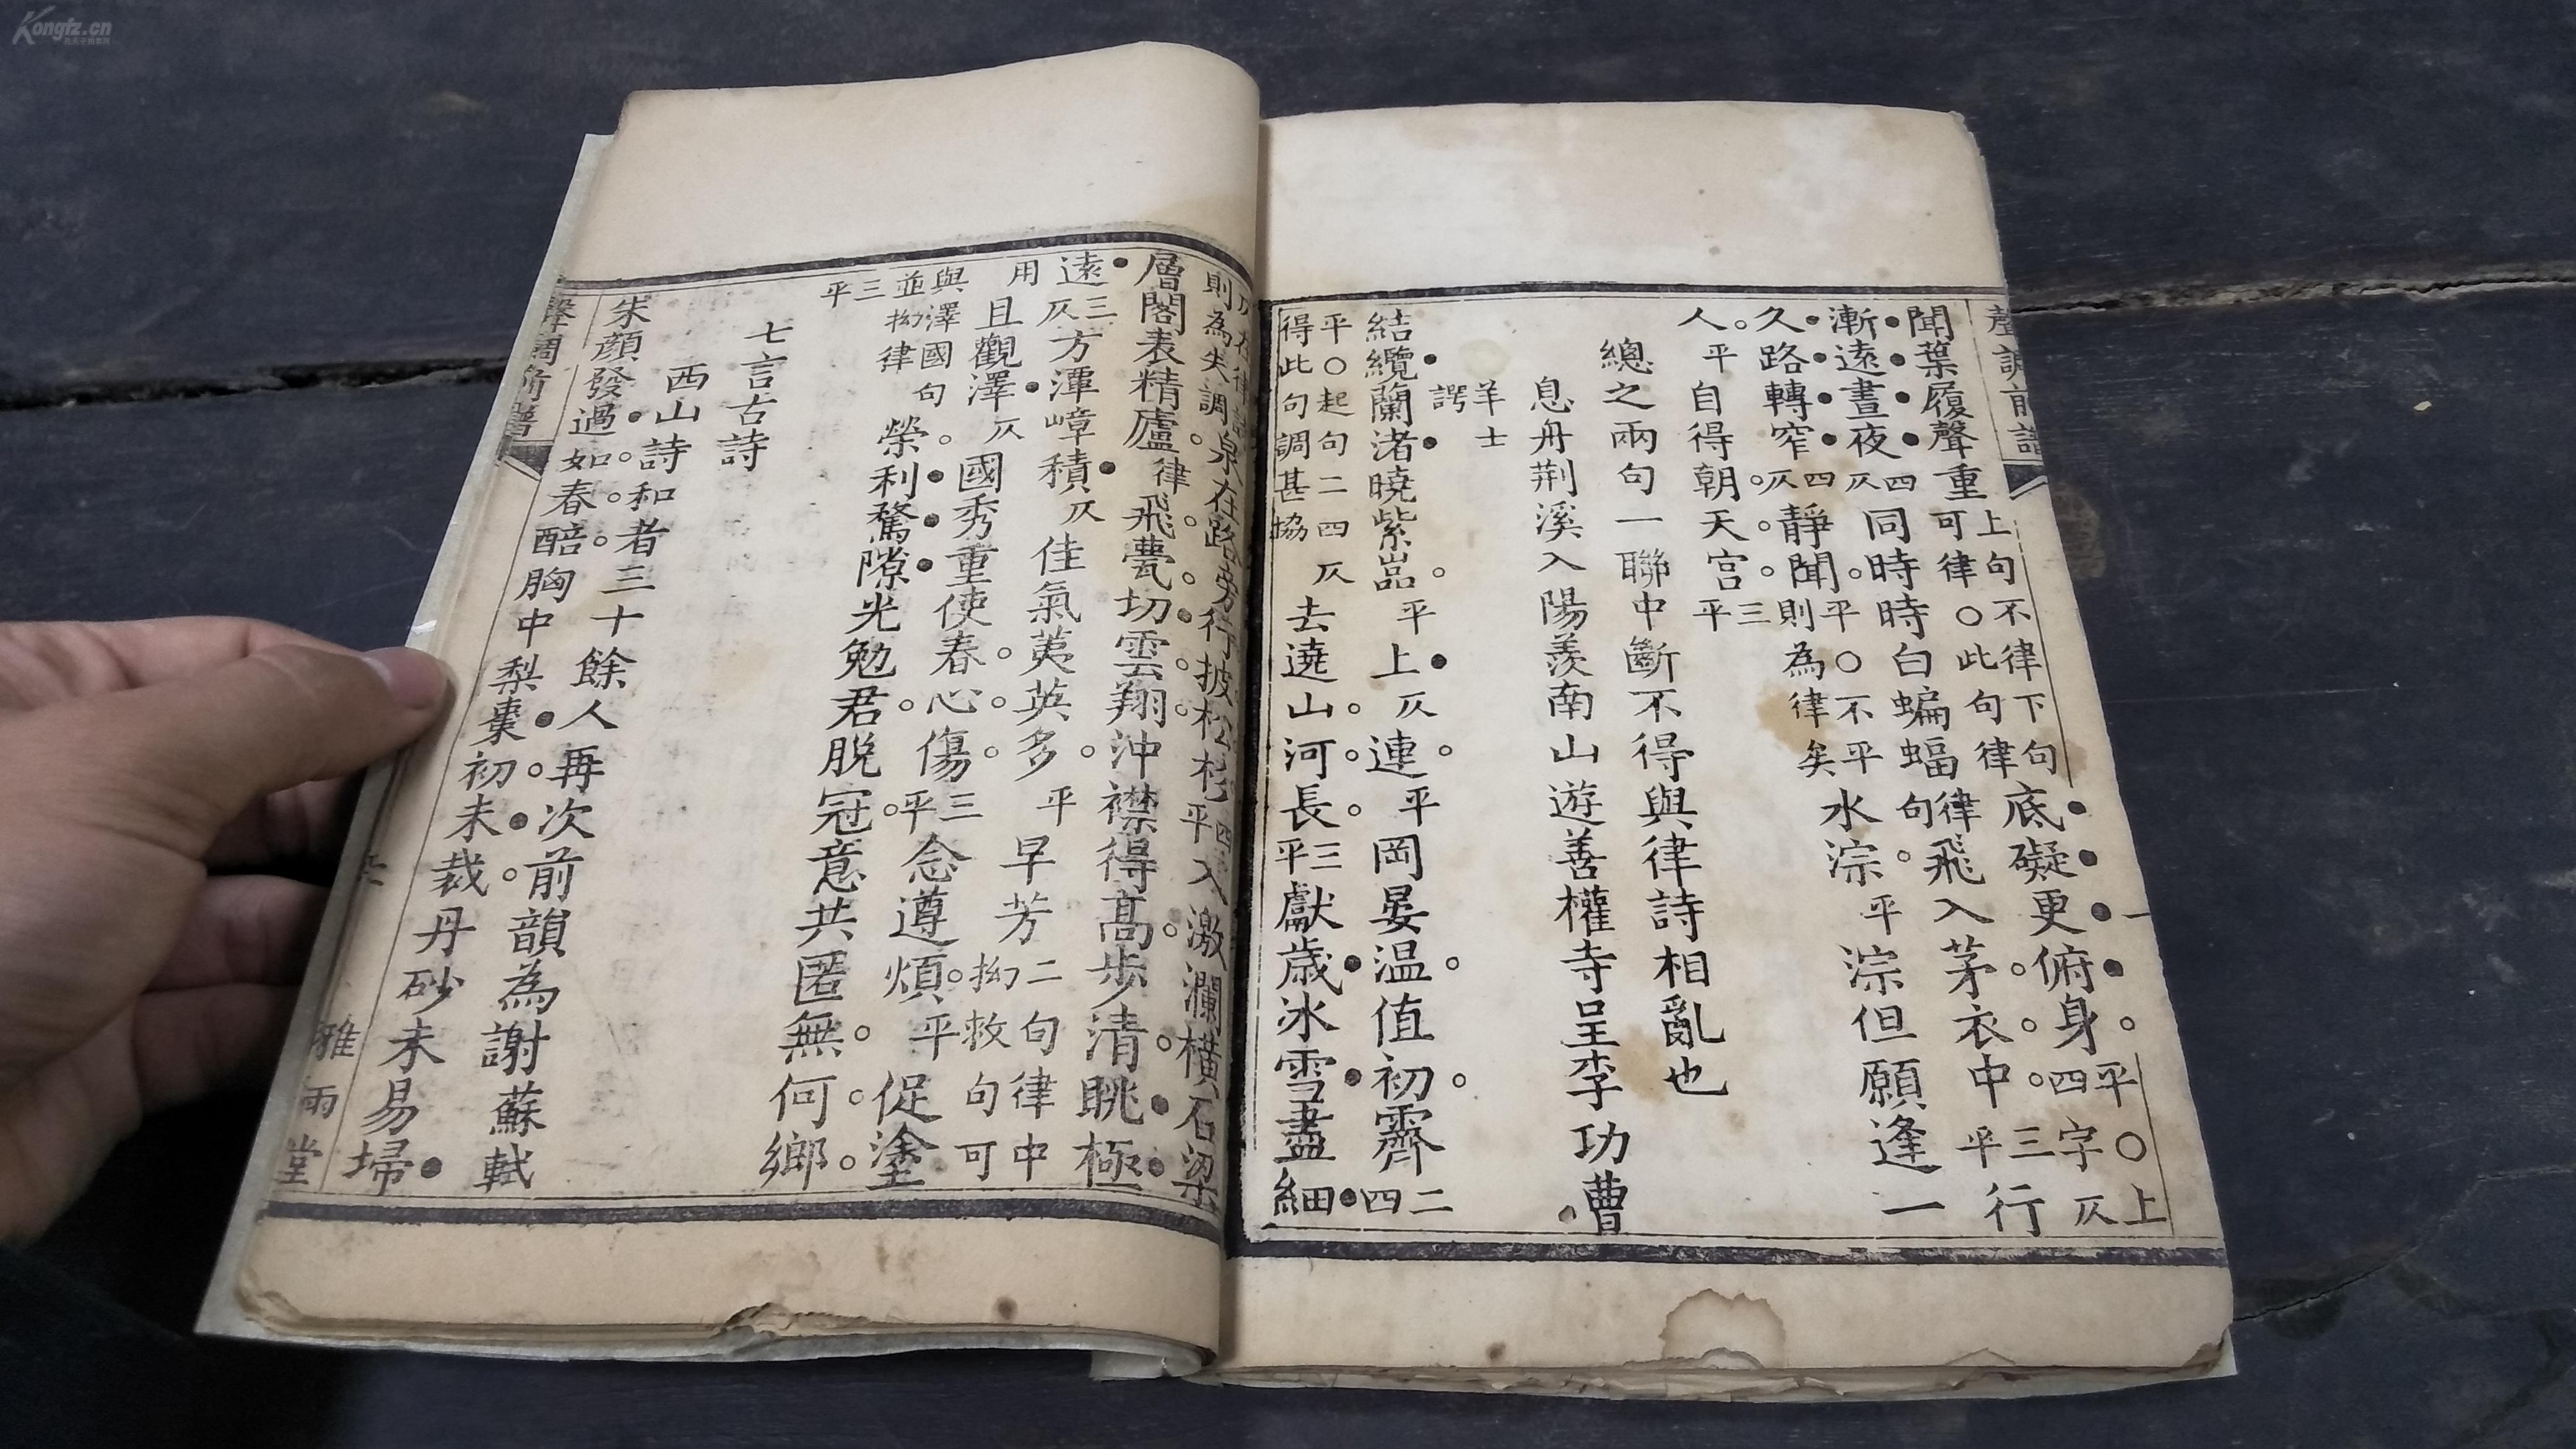 聲調前譜
聞葉履聲重上句不律下句可律○此句律底礙更俯身平○上四字仄
漸遠晝夜四仄同時時白蝙蝠律句飛入茅衣中三平行
久路轉窄四仄靜聞平○不平則為律矣水淙平淙但願逢一
人平自得朝天宮三平
總之兩句一聯中斷不得與律詩相亂也
息舟荆溪入陽羨南山遊善權寺呈李功曹
羊士諤
結纜蘭渚曉紫嵓平上仄連平岡晏温值初霽二四
平○起句二四仄得此句調甚協去遶山河長三平獻歲冰雪盡細
仄在律詩則為失調泉在路旁行披松杉四平入激瀾橫石梁
層閣表精廬律飛甍切雲翔沖襟得髙步清眺極
遠三仄方潭嶂積仄佳氣荑英多平早芳二句律中拗救句可
用且觀澤仄國秀重使春心傷三平念遵煩平促塗
與澤國句並拗律榮利騖隙光勉君脱冠意共匿無何鄉
三平
七言古詩
西山詩和者三十餘人再次前韻為謝蘇軾
朱顔發過如春醅胸中梨棗初未裁丹砂未易埽
聲調前譜
雅雨堂
Kongfz.cn